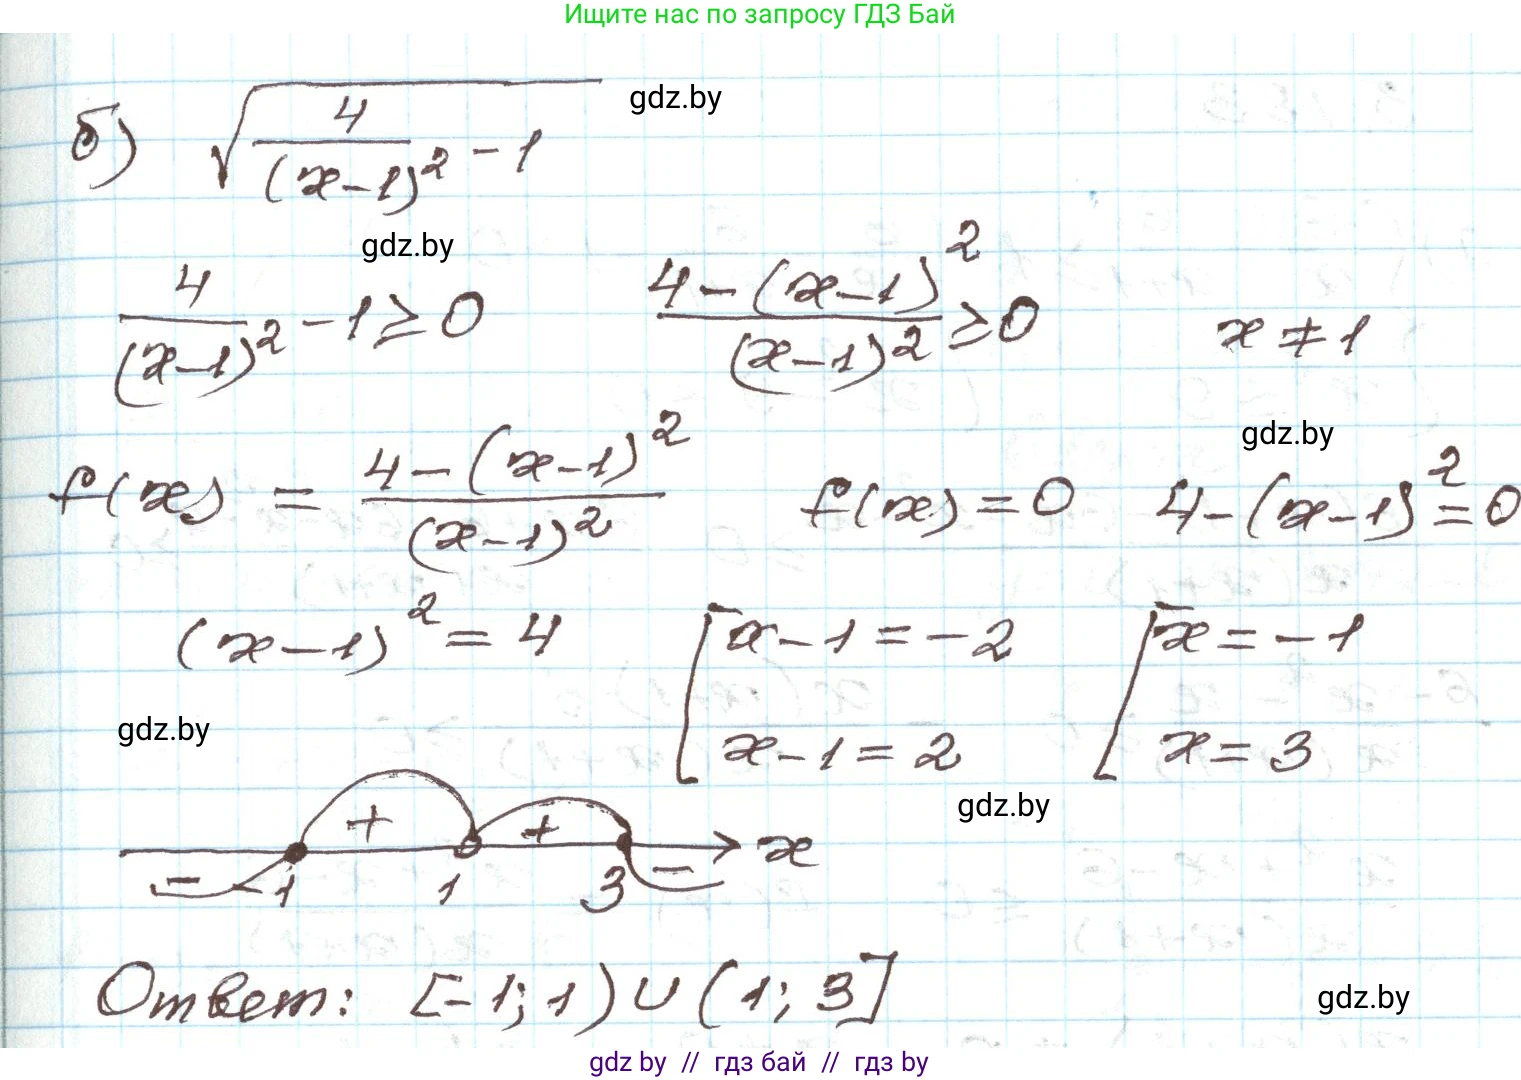 Ищите нас по запросу ГДЗ Бай
б) √(4/(x-1)² - 1)
gdz.by
gdz.by
4/(x-1)² - 1 ≥ 0    (4-(x-1)²)/(x-1)² ≥ 0    x ≠ 1
gdz.by
f(x) = (4-(x-1)²)/(x-1)²    f(x) = 0    4-(x-1)² = 0
(x-1)² = 4    [x-1 = -2    [x = -1
x-1 = 2    x = 3
gdz.by
gdz.by
+ + x
- -1 1 3 -
Ответ: [-1; 1) ∪ (1; 3]
gdz.by
gdz by // гдз бай // гдз by